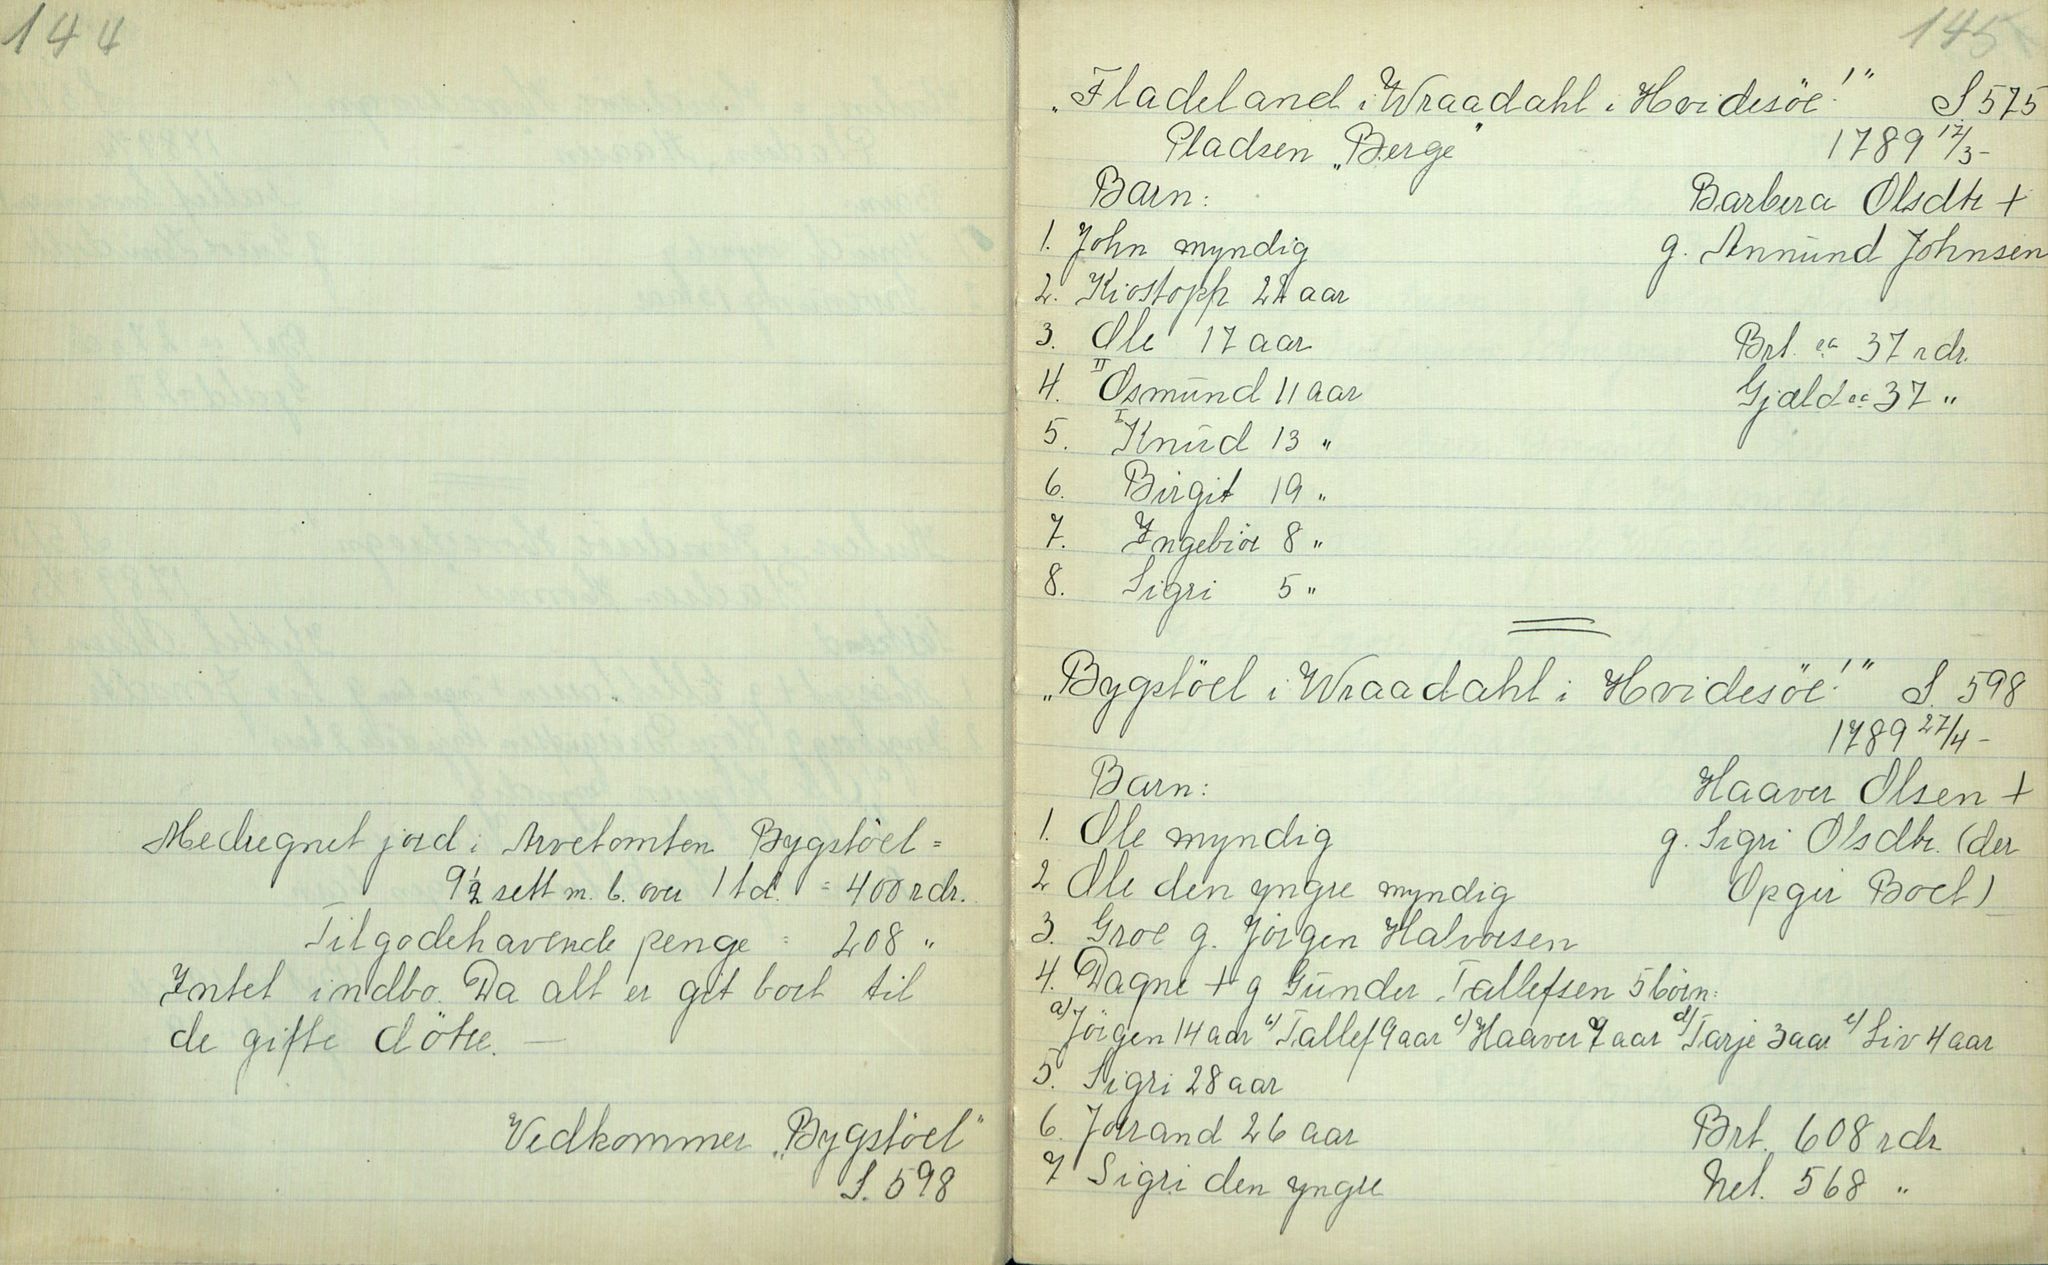 144
Medregnet jord i Arvetomten Bygstöel =
9½ sett m. b. over 1 td. = 400 rdr.
Tilgodehavende penge = 208 "
Intet indbo. Da alt er git bort til
de gifte døtre. —
Vedkommer „Bygstöel"
S. 598
145
„Fladeland i Wraadahl i Hvidesöe!" S 575
Pladsen „Berge" 1789 17/3-
Barn: Barbera Olsdtr +
1. John myndig g. Annund Johnsen
2. Kiostopp 22 aar
3. Ole 17 aar Brt. ca 37 rdr.
4. II Osmund 11 aar Gjæld ca 37 "
5. I Knud 13 "
6. Birgit 19 "
7. Ingebiör 8 "
8. Sigri 5 "
„Bygstöel i Wraadahl i Hvidesöe!" S. 598
1789 27/4-
Barn: Haaver Olsen +
1. Ole myndig g. Sigri Olsdtr. (der
2 Ole den yngre myndig Opgir Boet)
3. Groe g. Jörgen Halvorsen
4. Dagne + g Gunder Tallefsen 5 börn:
a) Jörgen 14 aar b) Tallef 9 aar c) Haaver 7 aar d) Tarje 3 aar e) Liv 4 aar
5. Sigri 28 aar
6. Jorrand 26 aar Brt. 608 rdr
7 Sigri den yngre Net. 568 "